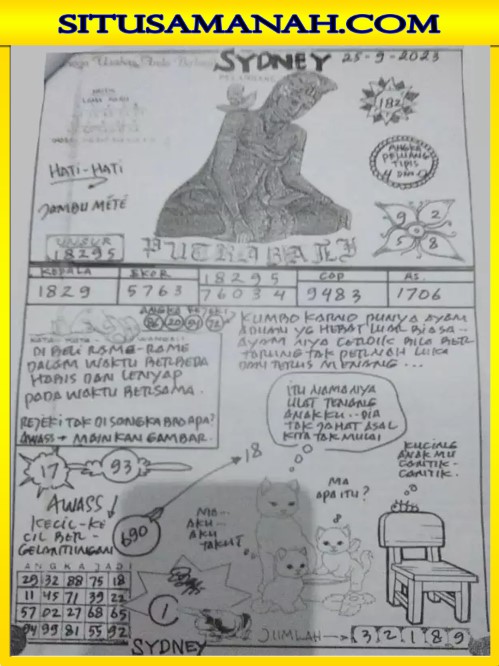 SITUSAMANAH.COM
SYDNEY 25-9-2023
182
HATI-HATI
ANGKA
PELUANG
TIPIS
JAMBU METE
9 2
5 8
UNSUR
18295
PUTRA BALI
KEPALA EKOR 18295 COP AS.
1829 5763 76034 9483 1706
KUMBO KARNO PUNYA AYAM
ADUAN YG HEBAT LUAR BIASA--
AYAM NIYA CERDIK BILA BER-
TARUNG TAK PERNAH LUKA
DAN TERUS MENANG...
DI BELI RAME-RAME
DALAM WAKTU BERBEDA
HABIS DAN LENYAP
PADA WAKTU BERSAMA.
REJEKI TAK DI SONGKA BRO APA?
AWASS → MAINKAN GAMBAR.
ITU NAMANIYA
ULAT TENANG
ANAKKU..DIA
TAK JAHAT ASAL
KITA TAK MULAI
18
17 93
KUCING
ANAK MU
CANTIK-
CANTIK.
MA
APA ITU?
MA--
AKU--
AKU
TAKUT
AWASS!
KECIL-KE
CIL BER-
GELANTINGAN
690
ANGKA JADI
29 32 88 75 18
11 45 71 39 22
57 02 27 68 65
94 99 81 55 92
1
SYDNEY
JUMLAH → 3 2 1 8 9